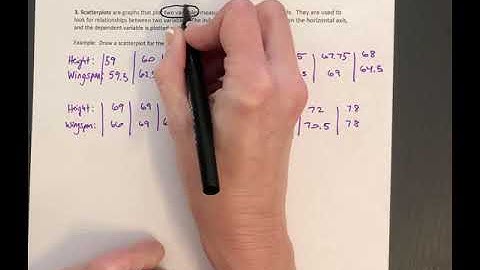 3. Scatterplots are graphs that plot two variable measu s. They are used to
look for relationships between two variables. The in on the horizontal axis,
and the dependent variable is plotted
Example: Draw a scatterplot for the
Height: 59 60 67.75 68
Wingspan: 59.5 62.5 69 64.5
Height: 69 69 72 78
Wingspan: 66 69 70.5 78